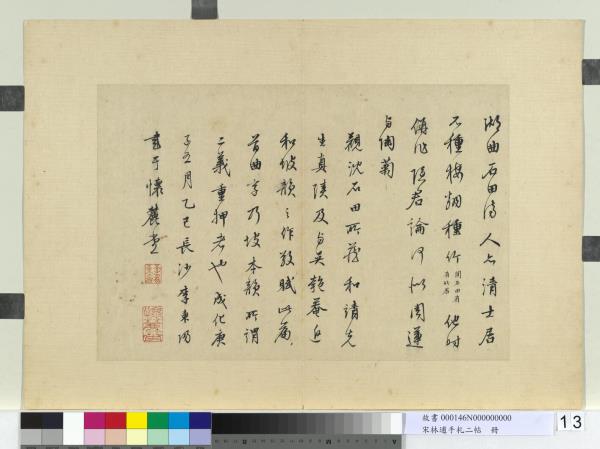 湖曲石田清人與清士居
不種梅烟種竹 聞石田有有竹居 他時
俱作隱君論何似周蓮
與陶菊
觀沈石田所藏和靖先
生真蹟及與吳匏菴近
和坡韻之作敬賦此篇
首曲字乃坡本韻所謂
二義重押者也成化庚
子五月乙巳長沙李東陽
書于懷麓堂
故書 000146N000000000
宋林逋手札二帖 冊
13